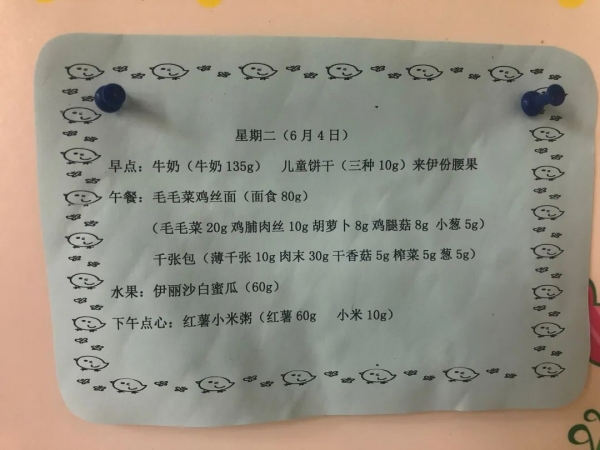 星期二（6月4日）
早点：牛奶（牛奶 135g） 儿童饼干（三种 10g）来伊份腰果
午餐：毛毛菜鸡丝面（面食 80g）
（毛毛菜 20g 鸡脯肉丝 10g 胡萝卜 8g 鸡腿菇 8g 小葱 5g）
千张包（薄千张 10g 肉末 30g 干香菇 5g 榨菜 5g 葱 5g）
水果：伊丽沙白蜜瓜（60g）
下午点心：红薯小米粥（红薯 60g 小米 10g）